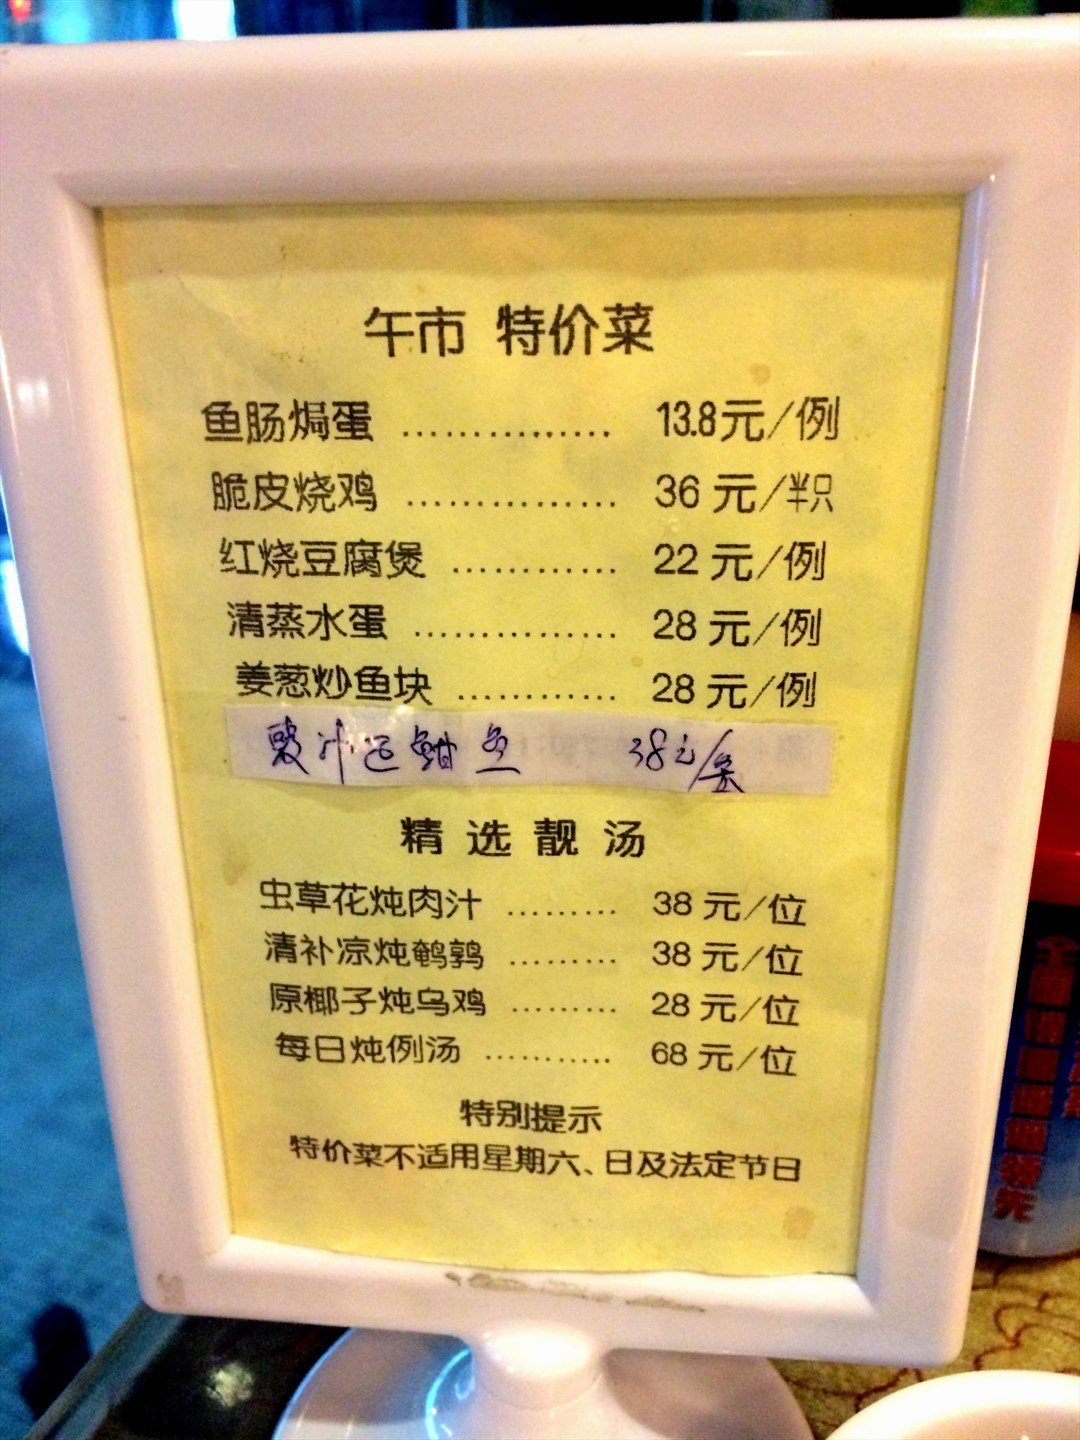 午市 特价菜
鱼肠焗蛋 ............... 13.8元/例
脆皮烧鸡 ............... 36 元/半只
红烧豆腐煲 ............ 22 元/例
清蒸水蛋 ............... 28 元/例
姜葱炒鱼块 ............ 28 元/例
豉汁 鱼 38元/条
精选靓汤
虫草花炖肉汁 ......... 38 元/位
清补凉炖鹌鹑 ......... 38 元/位
原椰子炖乌鸡 ......... 28 元/位
每日炖例汤 ............ 68 元/位
特别提示
特价菜不适用星期六、日及法定节日
全面
领先